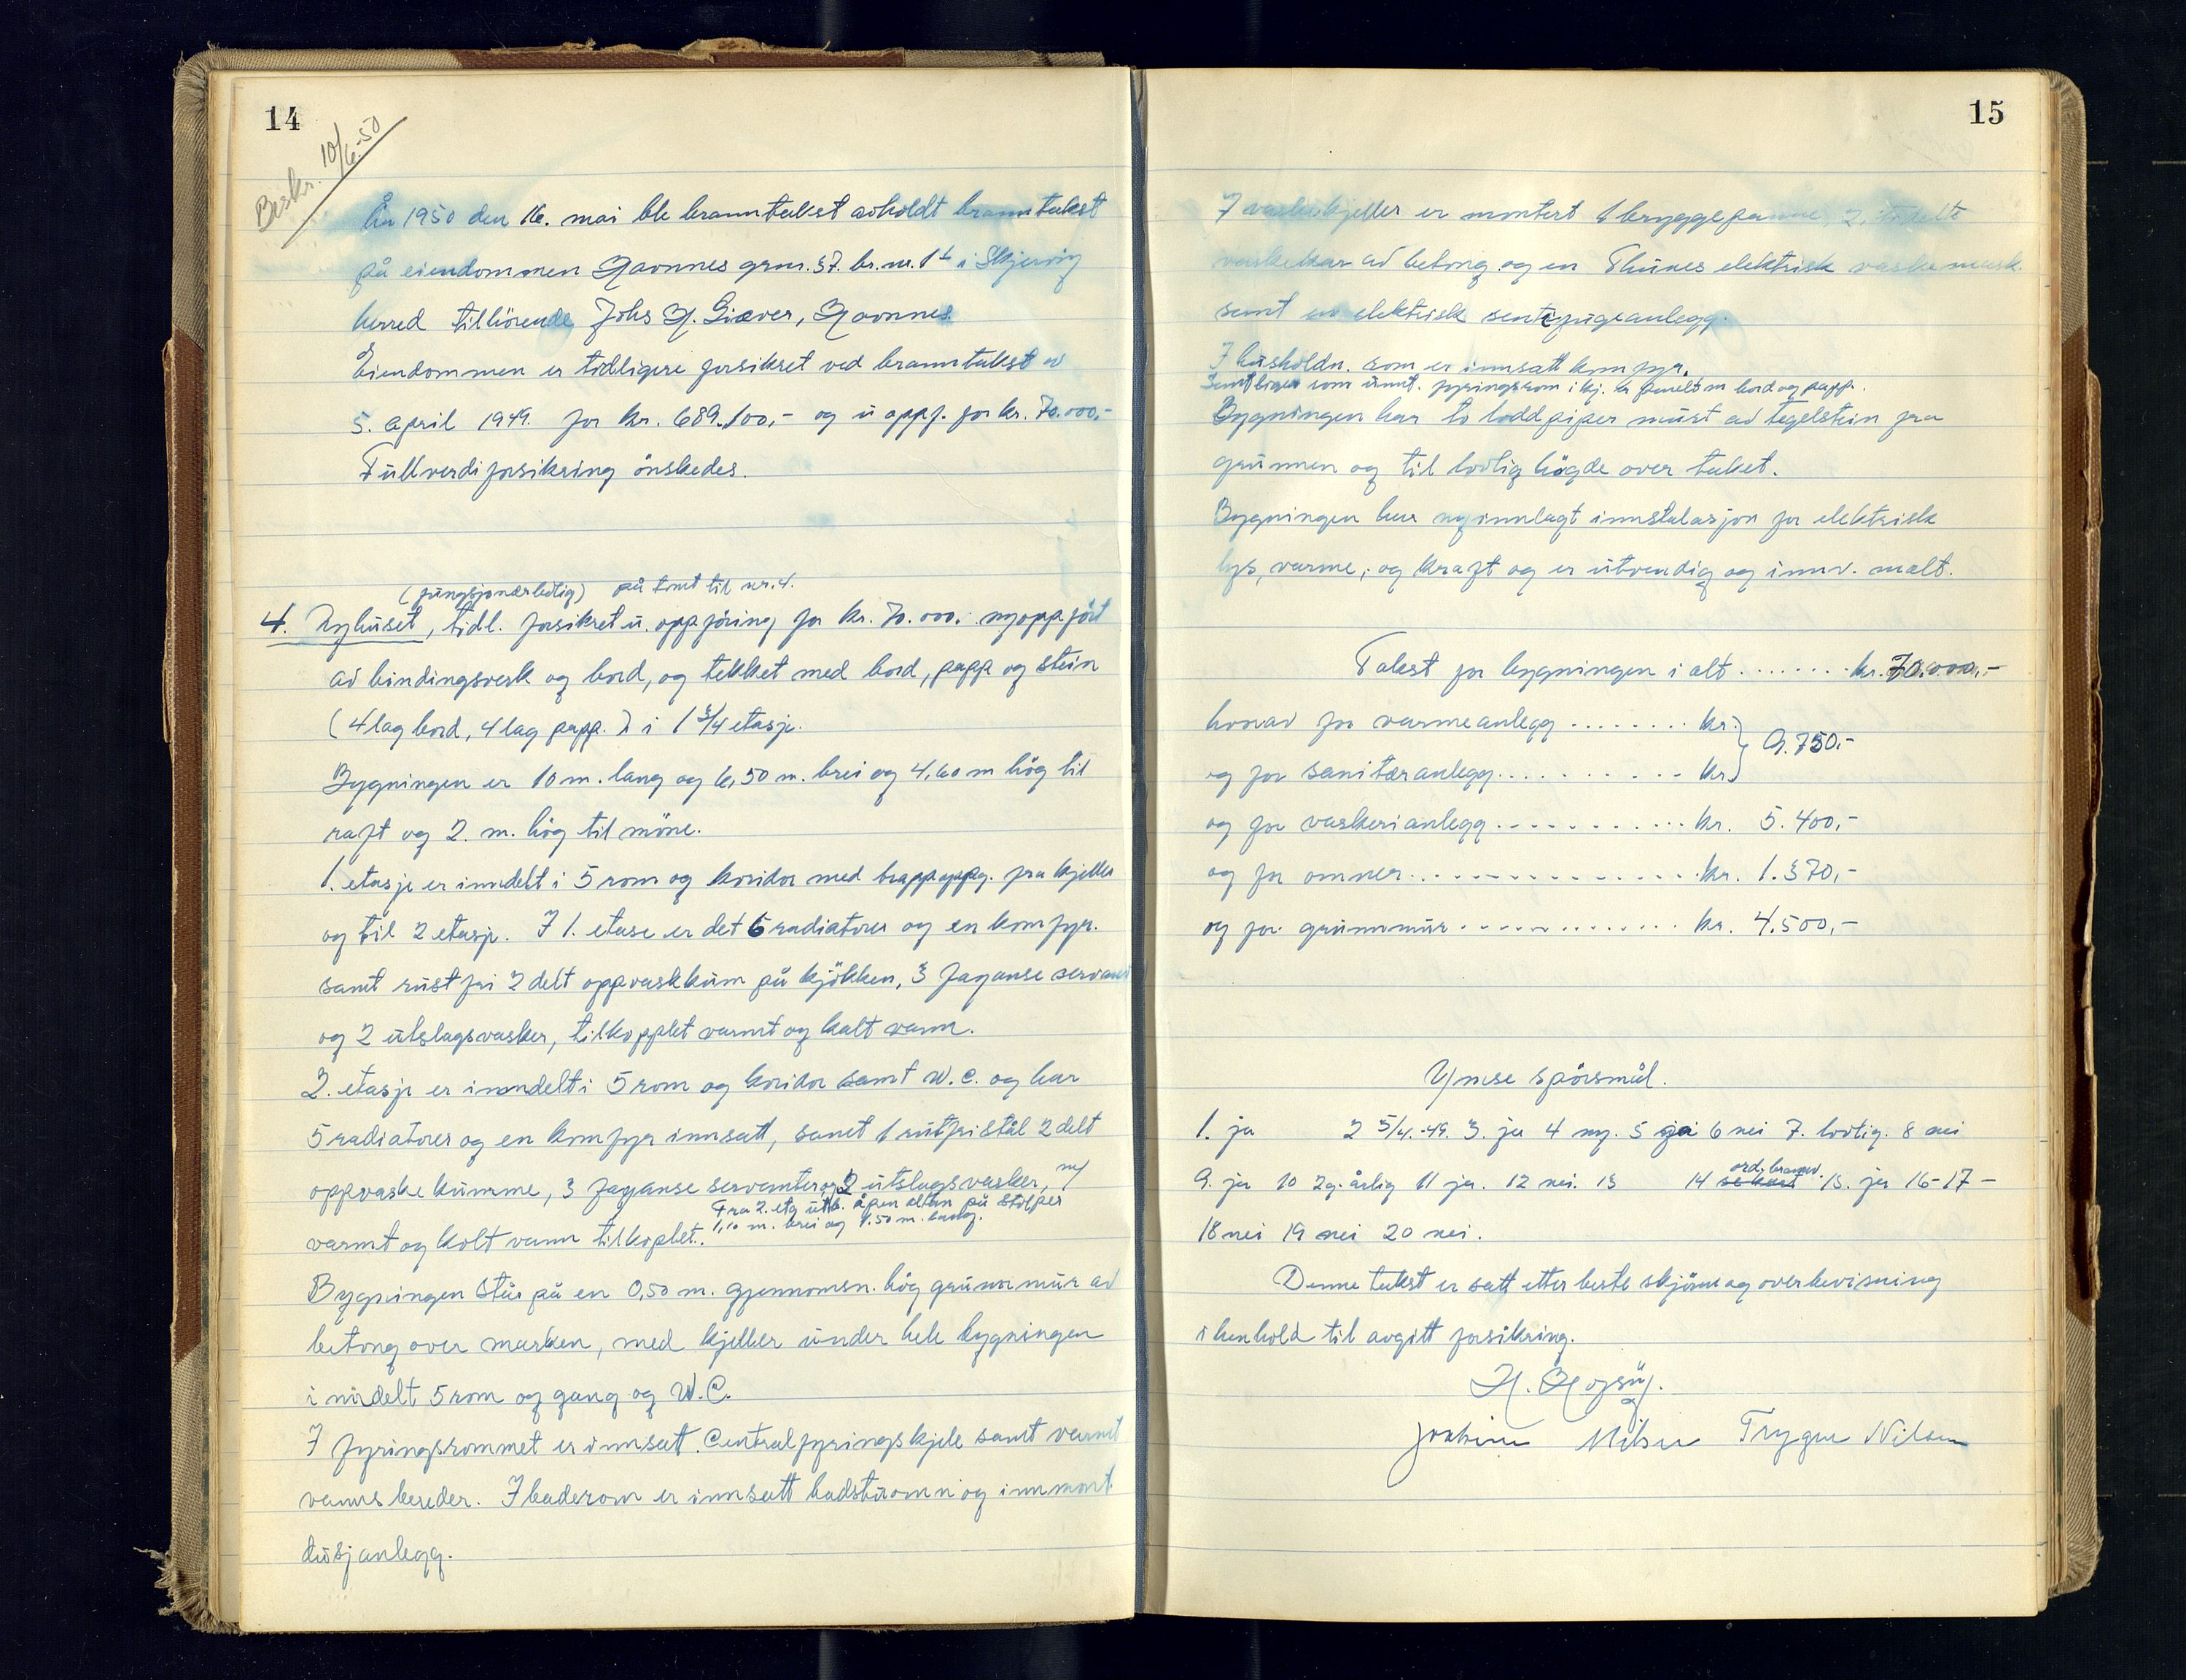 14
Beskr. 10/6-50
År 1950 den 16. mai ble branntakst avholdt branntakst
på eiendommen Havnnes grnr. 37. br.nr. 1 i Skjervöy
herred tilhörende Johs H. Giæver, Havnnes
Eiendommen er tidligere forsikret ved branntakst av
5. april 1949. for kr. 689.100,- og u oppf. for kr. 70.000,-
Fullverdiforsikring önskedes.
(fungsjonærbolig) på tomt til nr. 4.
4. Nyhuset, tidl. forsikret u. oppföring for kr. 70.000.- nyoppfört
av bindingsverk og bord, og tekket med bord, papp og stein
(4 lag bord, 4 lag papp.) i 1 3/4 etasje.
Bygningen er 10 m. lang og 6,50 m. brei og 4,60 m hög til
raft og 2. m. hög til möne.
1. etasje er inndelt i 5 rom og koridor med trappoppg. fra kjeller
og til 2 etasje. I 1. etase er det 6 radiatorer og en komfyr.
samt rustfri 2 delt oppvaskkum på kjökken, 3 fayanse servant
og 2 utslagsvasker, tilkopplet varmt og kalt vann.
2. etasje er inndelt i 5 rom og koridor samt W.C. og har
5 radiatorer og en komfyr innsatt, samt 1 rutfristål 2 delt
oppvaske kumme, 3 fayanse servanter og 2 utslagsvasker, m/
Fra 2. etg utb. åpen altan på stolper
1,10 m. brei og 1.50 m. lang.
varmt og kolt vann tilkoplet.
Bygningen står på en 0,50 m. gjennomsn. hög grunnmur av
betong over marken, med kjeller under hele bygningen
inndelt 5 rom og gang og W.C.
I fyringsrommet er innsatt. Centralfyringskjele samt varmt
vanns bereder. I baderom er innsatt badstuomn og innmont.
dusjanlegg.
15
I vaskekjeller er montert 1 bryggepanne, 2. todelte
vaskekar av betong og en Thunes elektrisk vaskemask.
samt en elektrisk sentrifugeanlegg.
I husholdn. rom er innsatt komfyr.
Samtlige rom unnt. fyringsrom i kj. er panelt m bord og papp.
Bygningen har to loddpiper murt av tegelstein fra
grunnen og til lovlig högde over taket.
Bygningen har nyinnlagt innstalasjon for elektrisk
lys, varme, og kraft og er utvendig og innv. malt.
Takst for bygningen i alt ........ kr. 70.000,-
horav for varmeanlegg ........ kr. } 9.750,-
og for sanitæranlegg .......... kr.
og for vaskerianlegg ............ kr. 5.400,-
og for omner ................ kr. 1.370,-
og for grunnmur ............. kr. 4.500,-
Ymse spörsmål.
1. ja 2 5/4.-49. 3. ja 4 ny. 5 ja 6 nei 7. lovlig. 8 nei
ord. brannv.
9. ja 10 2 g. årlig 11 ja. 12 nei. 13 14 15. ja 16-17-
18 nei 19 nei 20 nei.
Denne takst er satt etter beste skjönn og overbevisning
i henhold til avgitt forsikring.
Trygve Nilsen